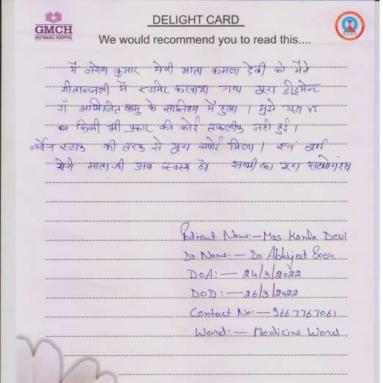 GMCH
GEETANJALI HOSPITAL
DELIGHT CARD
We would recommend you to read this....
मैं नरेश कुमार मेरी माता कमला देवी को मैंने
गीतान्जली में एडमिट करवाया गया पूरा ट्रीटमेन्ट
डॉ अभिजित बासु के सानिध्य में हुआ । मुझे यहा पर
किसी भी प्रकार की कोई तकलीफ नही हुई ।
नर्सिंग स्टाफ की तरफ से पूरा सपोर्ट मिला । एवं
मेरी माताजी अब स्वस्थ है। सभी का पूरा सहयोग रहा
Patient Name:- Mrs Kamla Devi
Dr Name:- Dr Abhijeet Basu
DOA:- 24/3/2022
DOD:- 26/3/2022
Contact No:- 9667767061
Ward:- Medicine Ward